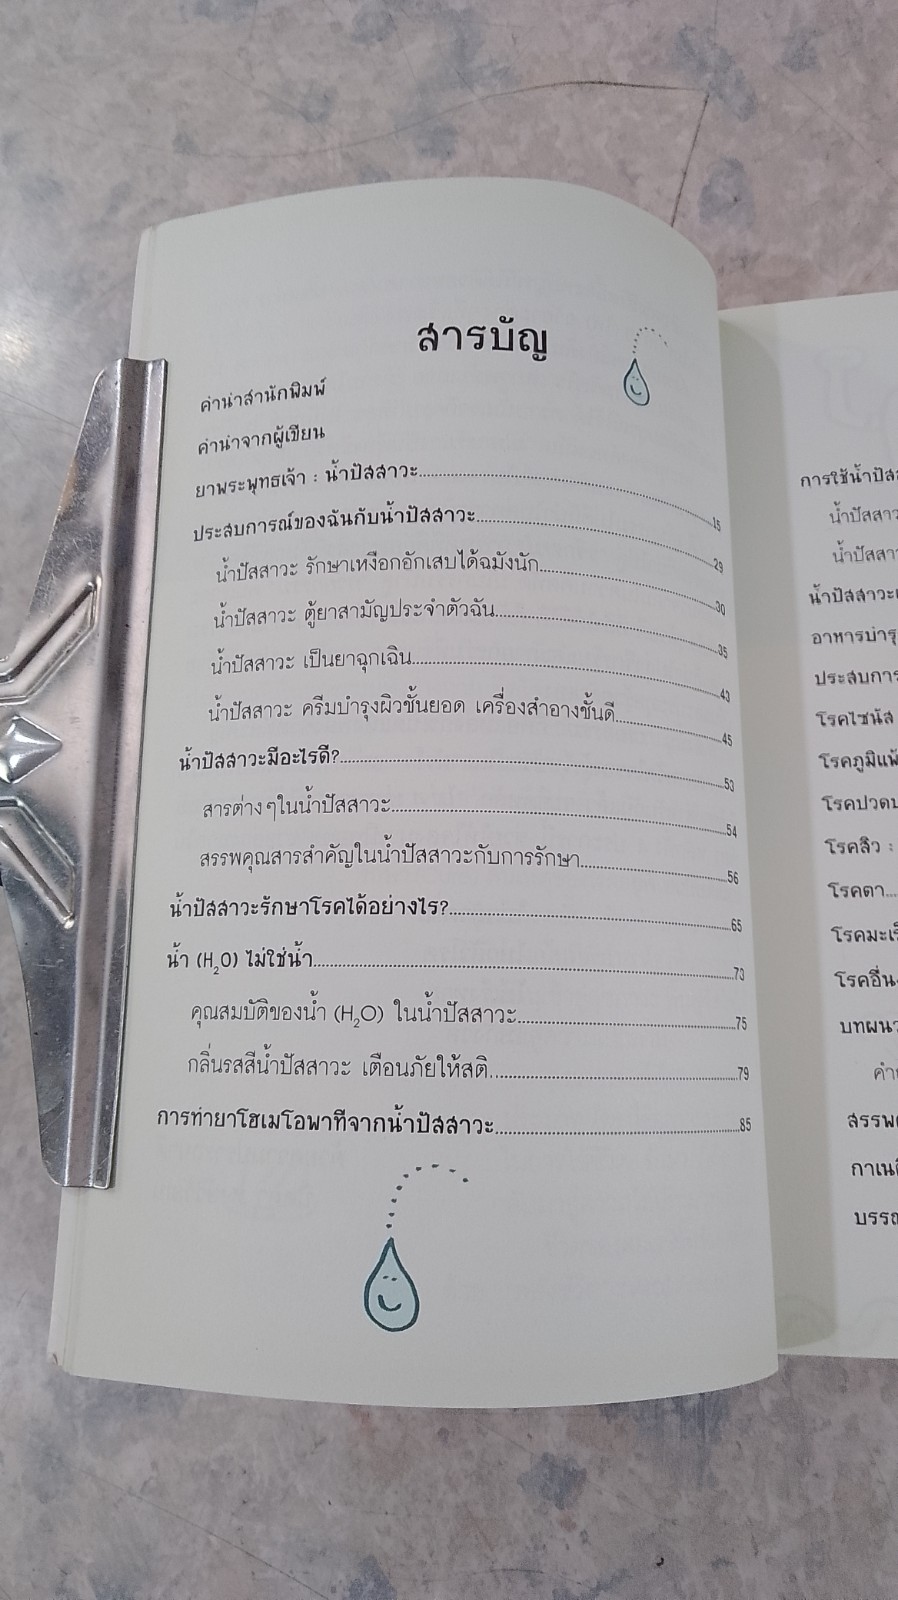 สารบัญ
คำนำสำนักพิมพ์
คำนำจากผู้เขียน
ยาพระพุทธเจ้า : น้ำปัสสาวะ 15
ประสบการณ์ของฉันกับน้ำปัสสาวะ 29
น้ำปัสสาวะ รักษาเหงือกอักเสบได้ฉมังนัก 30
น้ำปัสสาวะ ตู้ยาสามัญประจำตัวฉัน 35
น้ำปัสสาวะ เป็นยาฉุกเฉิน 43
น้ำปัสสาวะ ครีมบำรุงผิวชั้นยอด เครื่องสำอางชั้นดี 45
น้ำปัสสาวะมีอะไรดี? 53
สารต่างๆในน้ำปัสสาวะ 54
สรรพคุณสารสำคัญในน้ำปัสสาวะกับการรักษา 56
น้ำปัสสาวะรักษาโรคได้อย่างไร? 65
น้ำ (H₂O) ไม่ใช่น้ำ 73
คุณสมบัติของน้ำ (H₂O) ในน้ำปัสสาวะ 75
กลิ่นรสสีน้ำปัสสาวะ เตือนภัยให้สติ 79
การทำยาโฮเมโอพาทีจากน้ำปัสสาวะ 85
การใช้น้ำ
น้ำ
น้ำ
น้ำปัสสาวะ
อาหาร
โรคไซนัส
โรคสิว :
โรคตา